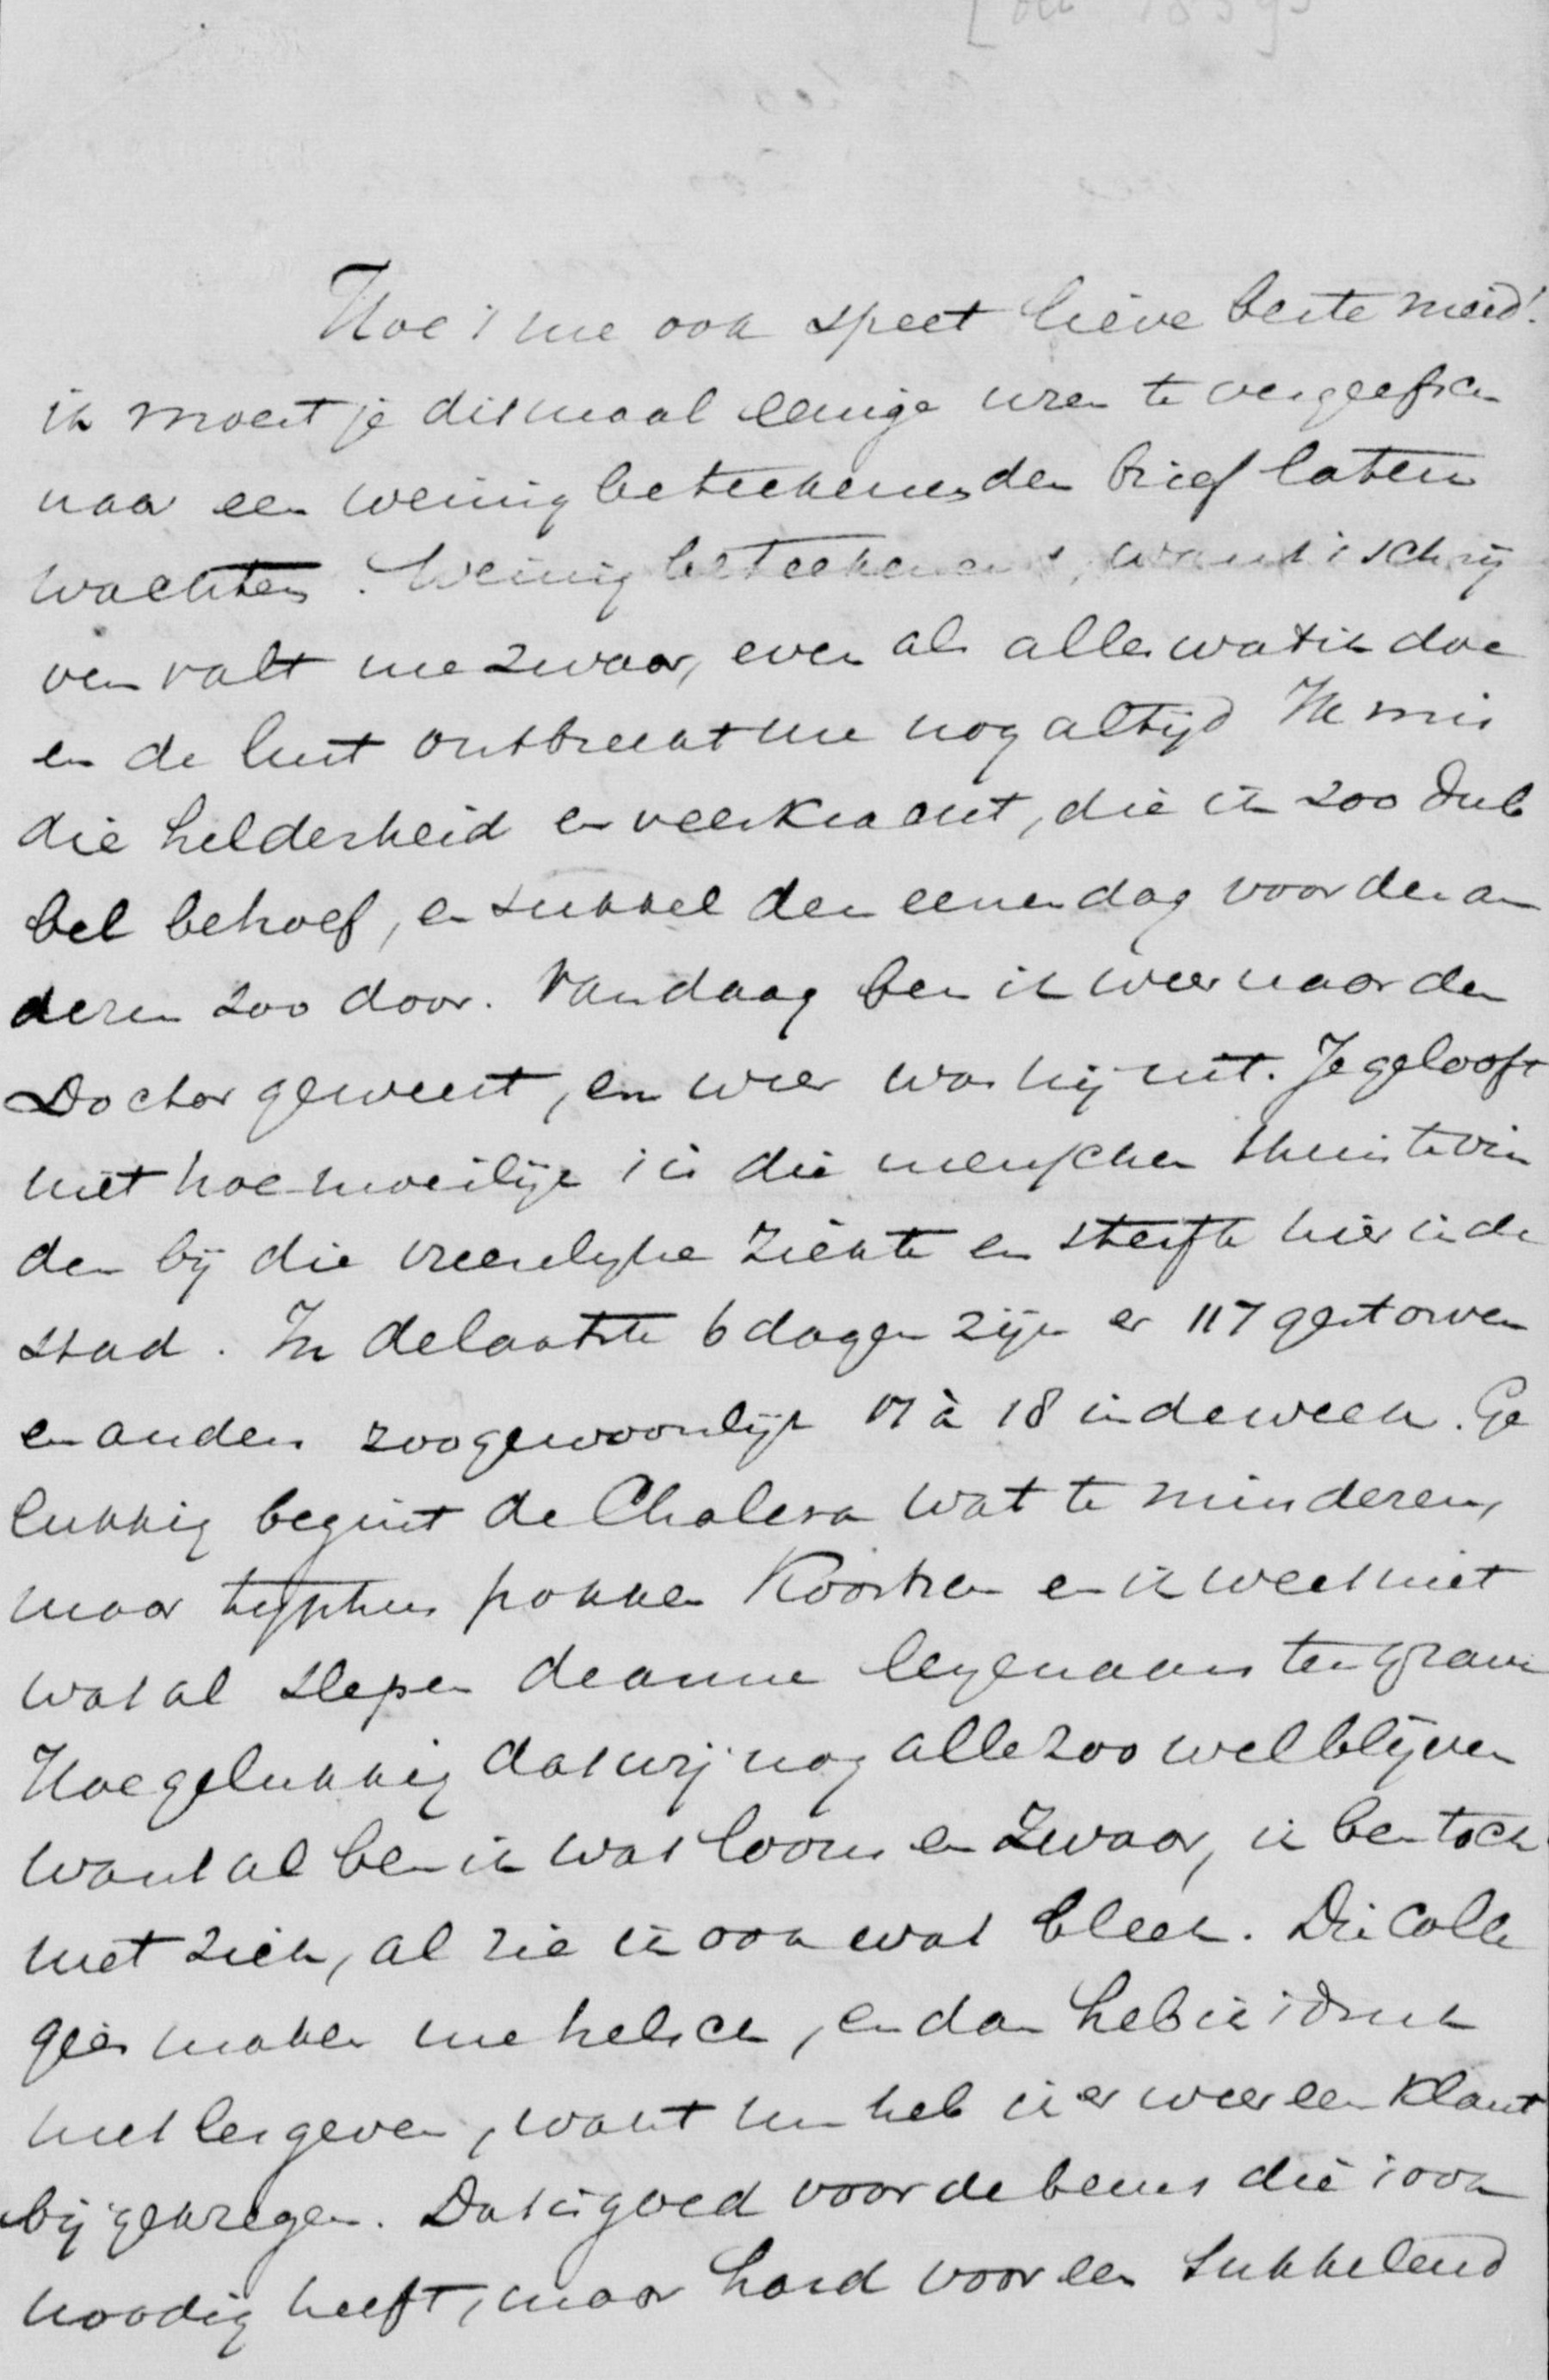 [Oct 1859]
Hoe 't me ook speet lieve beste meid!
ik moest je ditmaal eenige uren te vergeefsch
naar een weinig beteekenenden brief laten
wachten. Weinig beteekenend, want 't schrij
ven valt me zwaar, even als alles wat ik doe
en de lust ontbreekt me nog altijd Ik mis
die helderheid en veerkracht, die ik zoo dub
bel behoef, en sukkel den eenen dag voor den an
deren zoo door. Vandaag ben ik weer naar den
Doctor geweest, en weer was hij uit. Je gelooft
niet hoe moeilijk 't is die menschen thuis te vin
den bij die vreeselijke ziekte en sterfte hier in de
stad. In de laatste 6 dagen zijn er 117 gestorven
en anders zoo gewoonlijk 17 à 18 in de week. Ge
lukkig begint de Cholera wat te minderen,
maar typhus pokken Koortsen en ik weet niet
wat al slepen de arme Leyenaars ten grave
Hoe gelukkig dat wij nog alle zoo wel blijven
want al ben ik wat loom en zwaar, ik ben toch
niet ziek, al zie ik ook wat bleek. Die Colle
gies maken me heesch, en dan heb ik 't druk
met les geven, want nu heb ik er weer een klant
bij gekregen. Dat is goed voor de beurs die 't ook
noodig heeft, maar hard voor een sukkelend